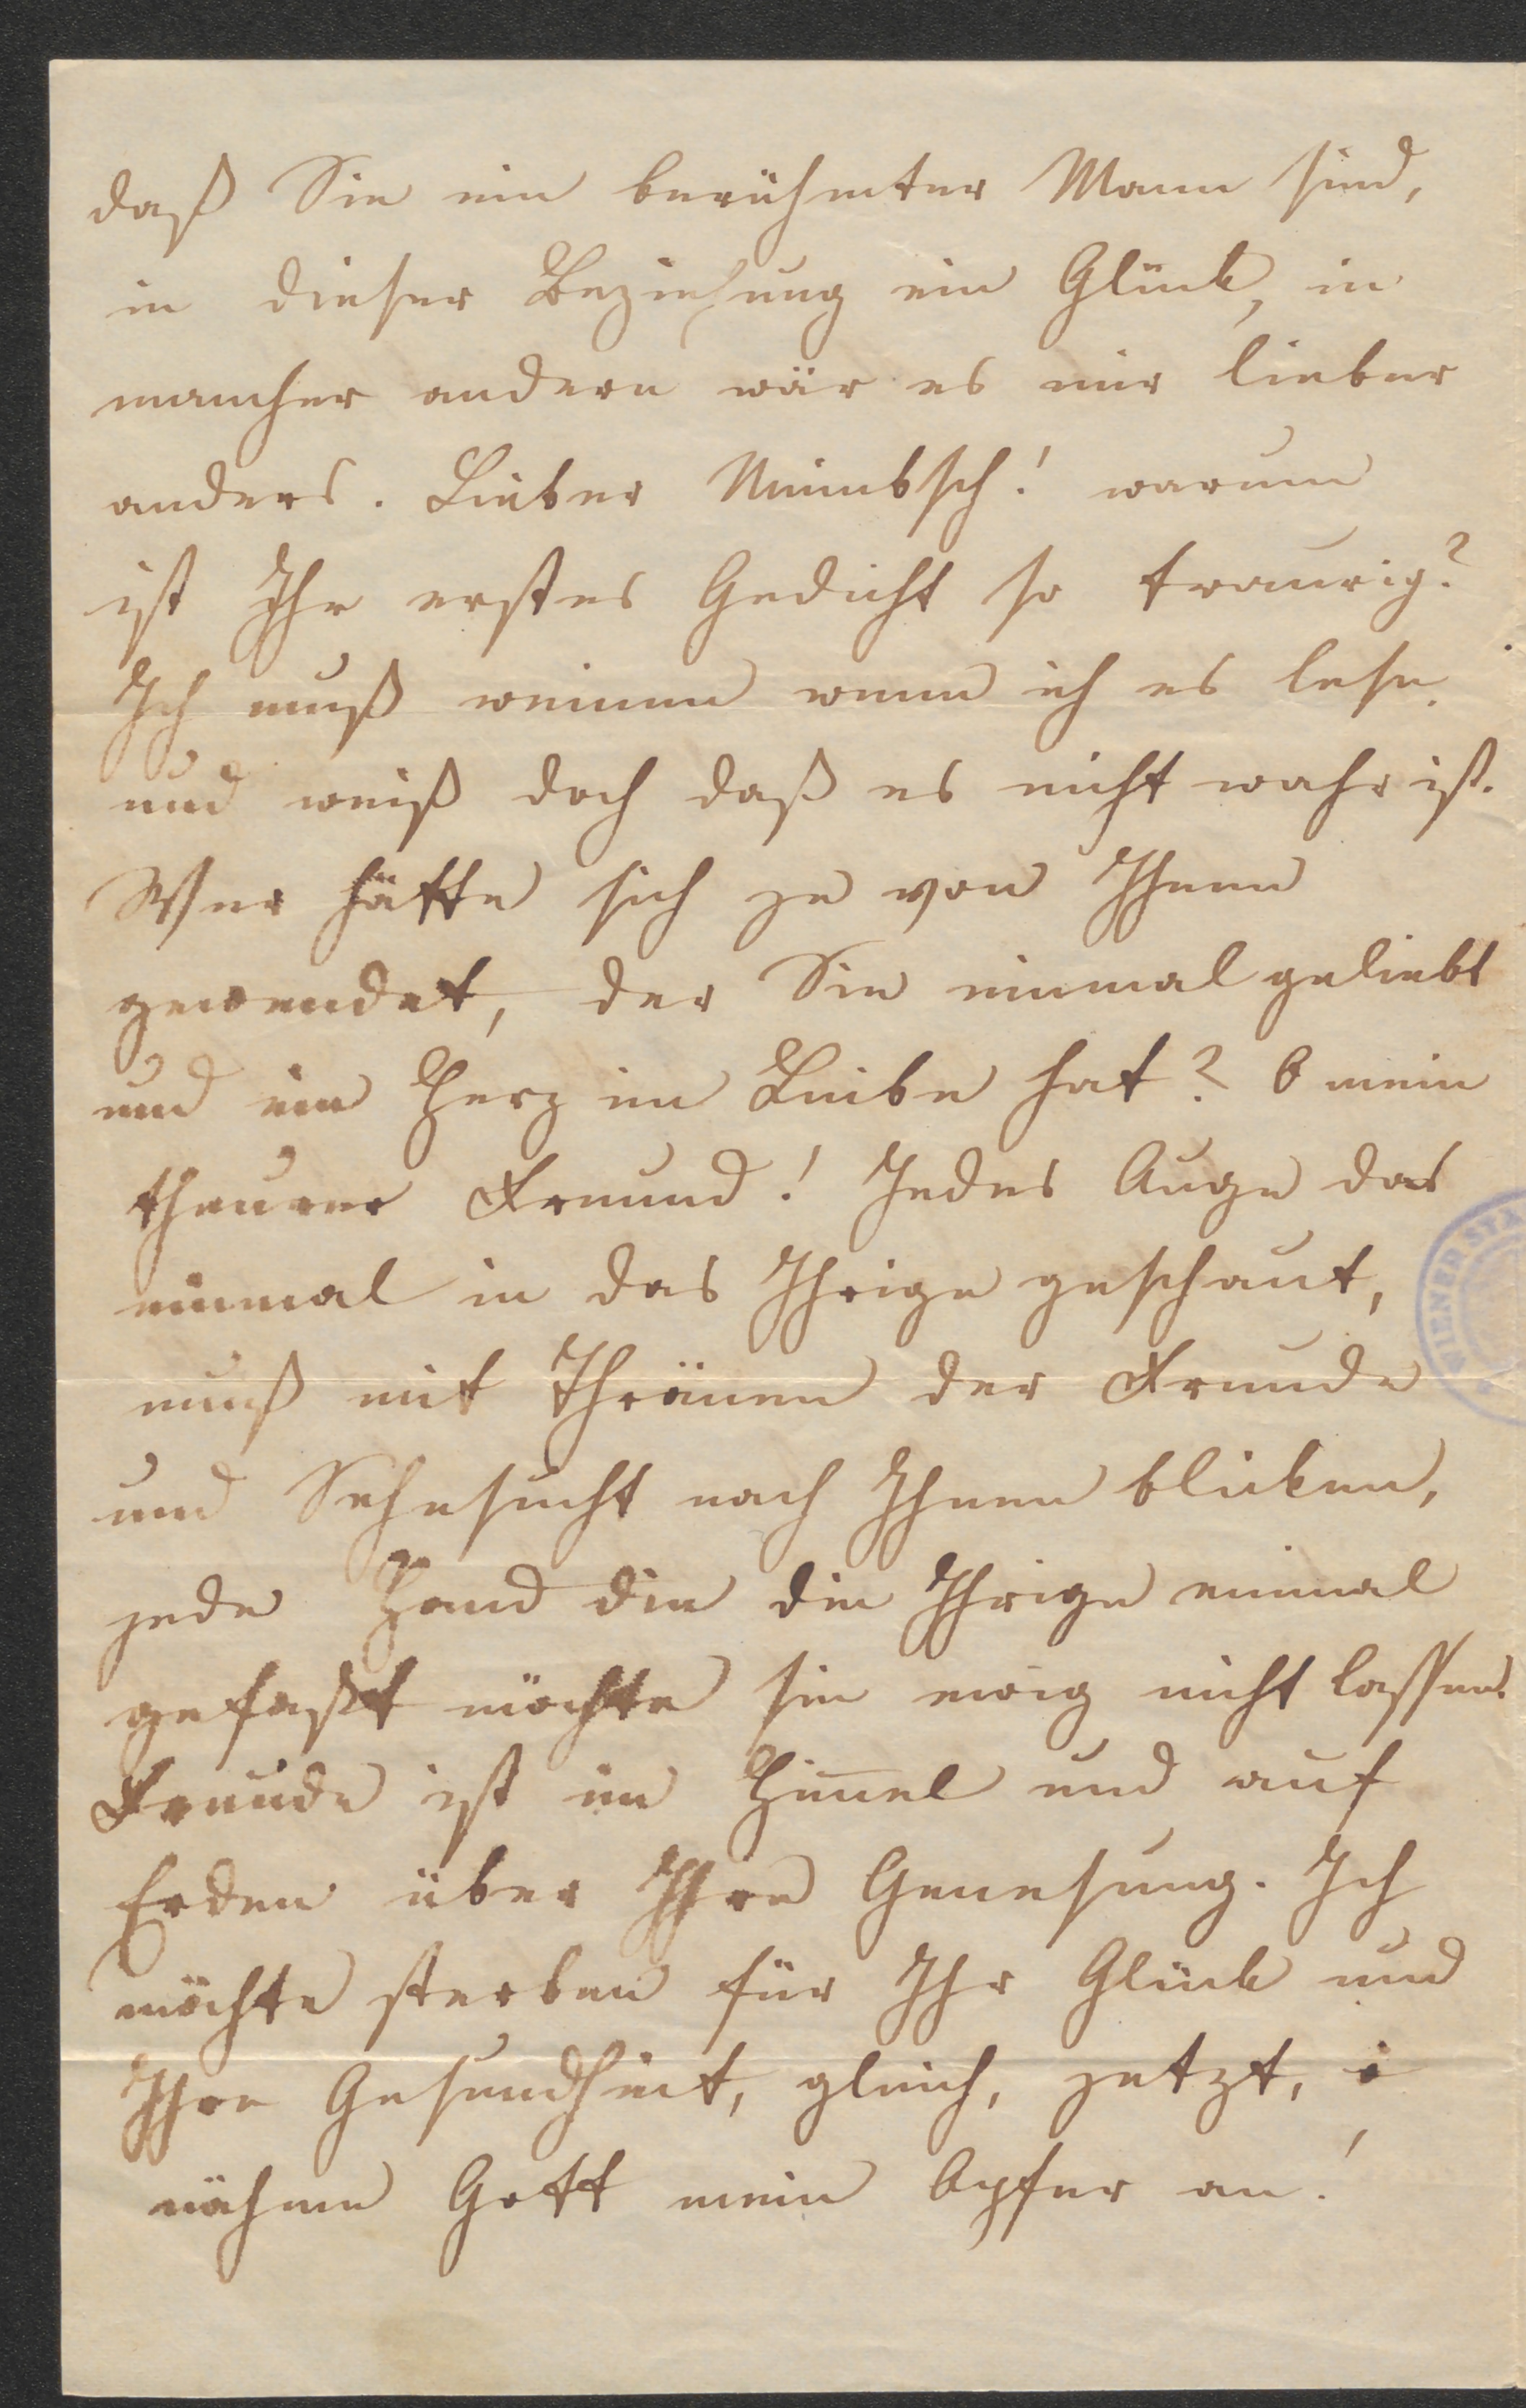 daß Sie ein berühmter Mann sind,
in dieser Beziehung ein Glück, in
mancher andern wär es mir lieber
anders. Lieber Niembsch! warum
ist Ihr erstes Gedicht so traurig?
Ich muß weinen wenn ich es lese,
und weiß doch daß es nicht wahr ist.
Wer hätte sich je von Ihnen
gewendet, der Sie einmal geliebt
und ein Herz im Leibe hat? O mein
theurer Freund! Jedes Auge das
einmal in das Ihrige geschaut,
muß mit Thränen der Freude
und Sehnsucht nach Ihnen blicken,
jede Hand die die Ihrige einmal
gefaßt möchte sie ewig nicht lassen.
Freude ist im Him̅el und auf
Erden über Ihre Genesung. Ich
möchte sterben für Ihr Glück und
Ihre Gesundheit, gleich, jetzt, o
nähme Gott mein Opfer an!
WIENER STA